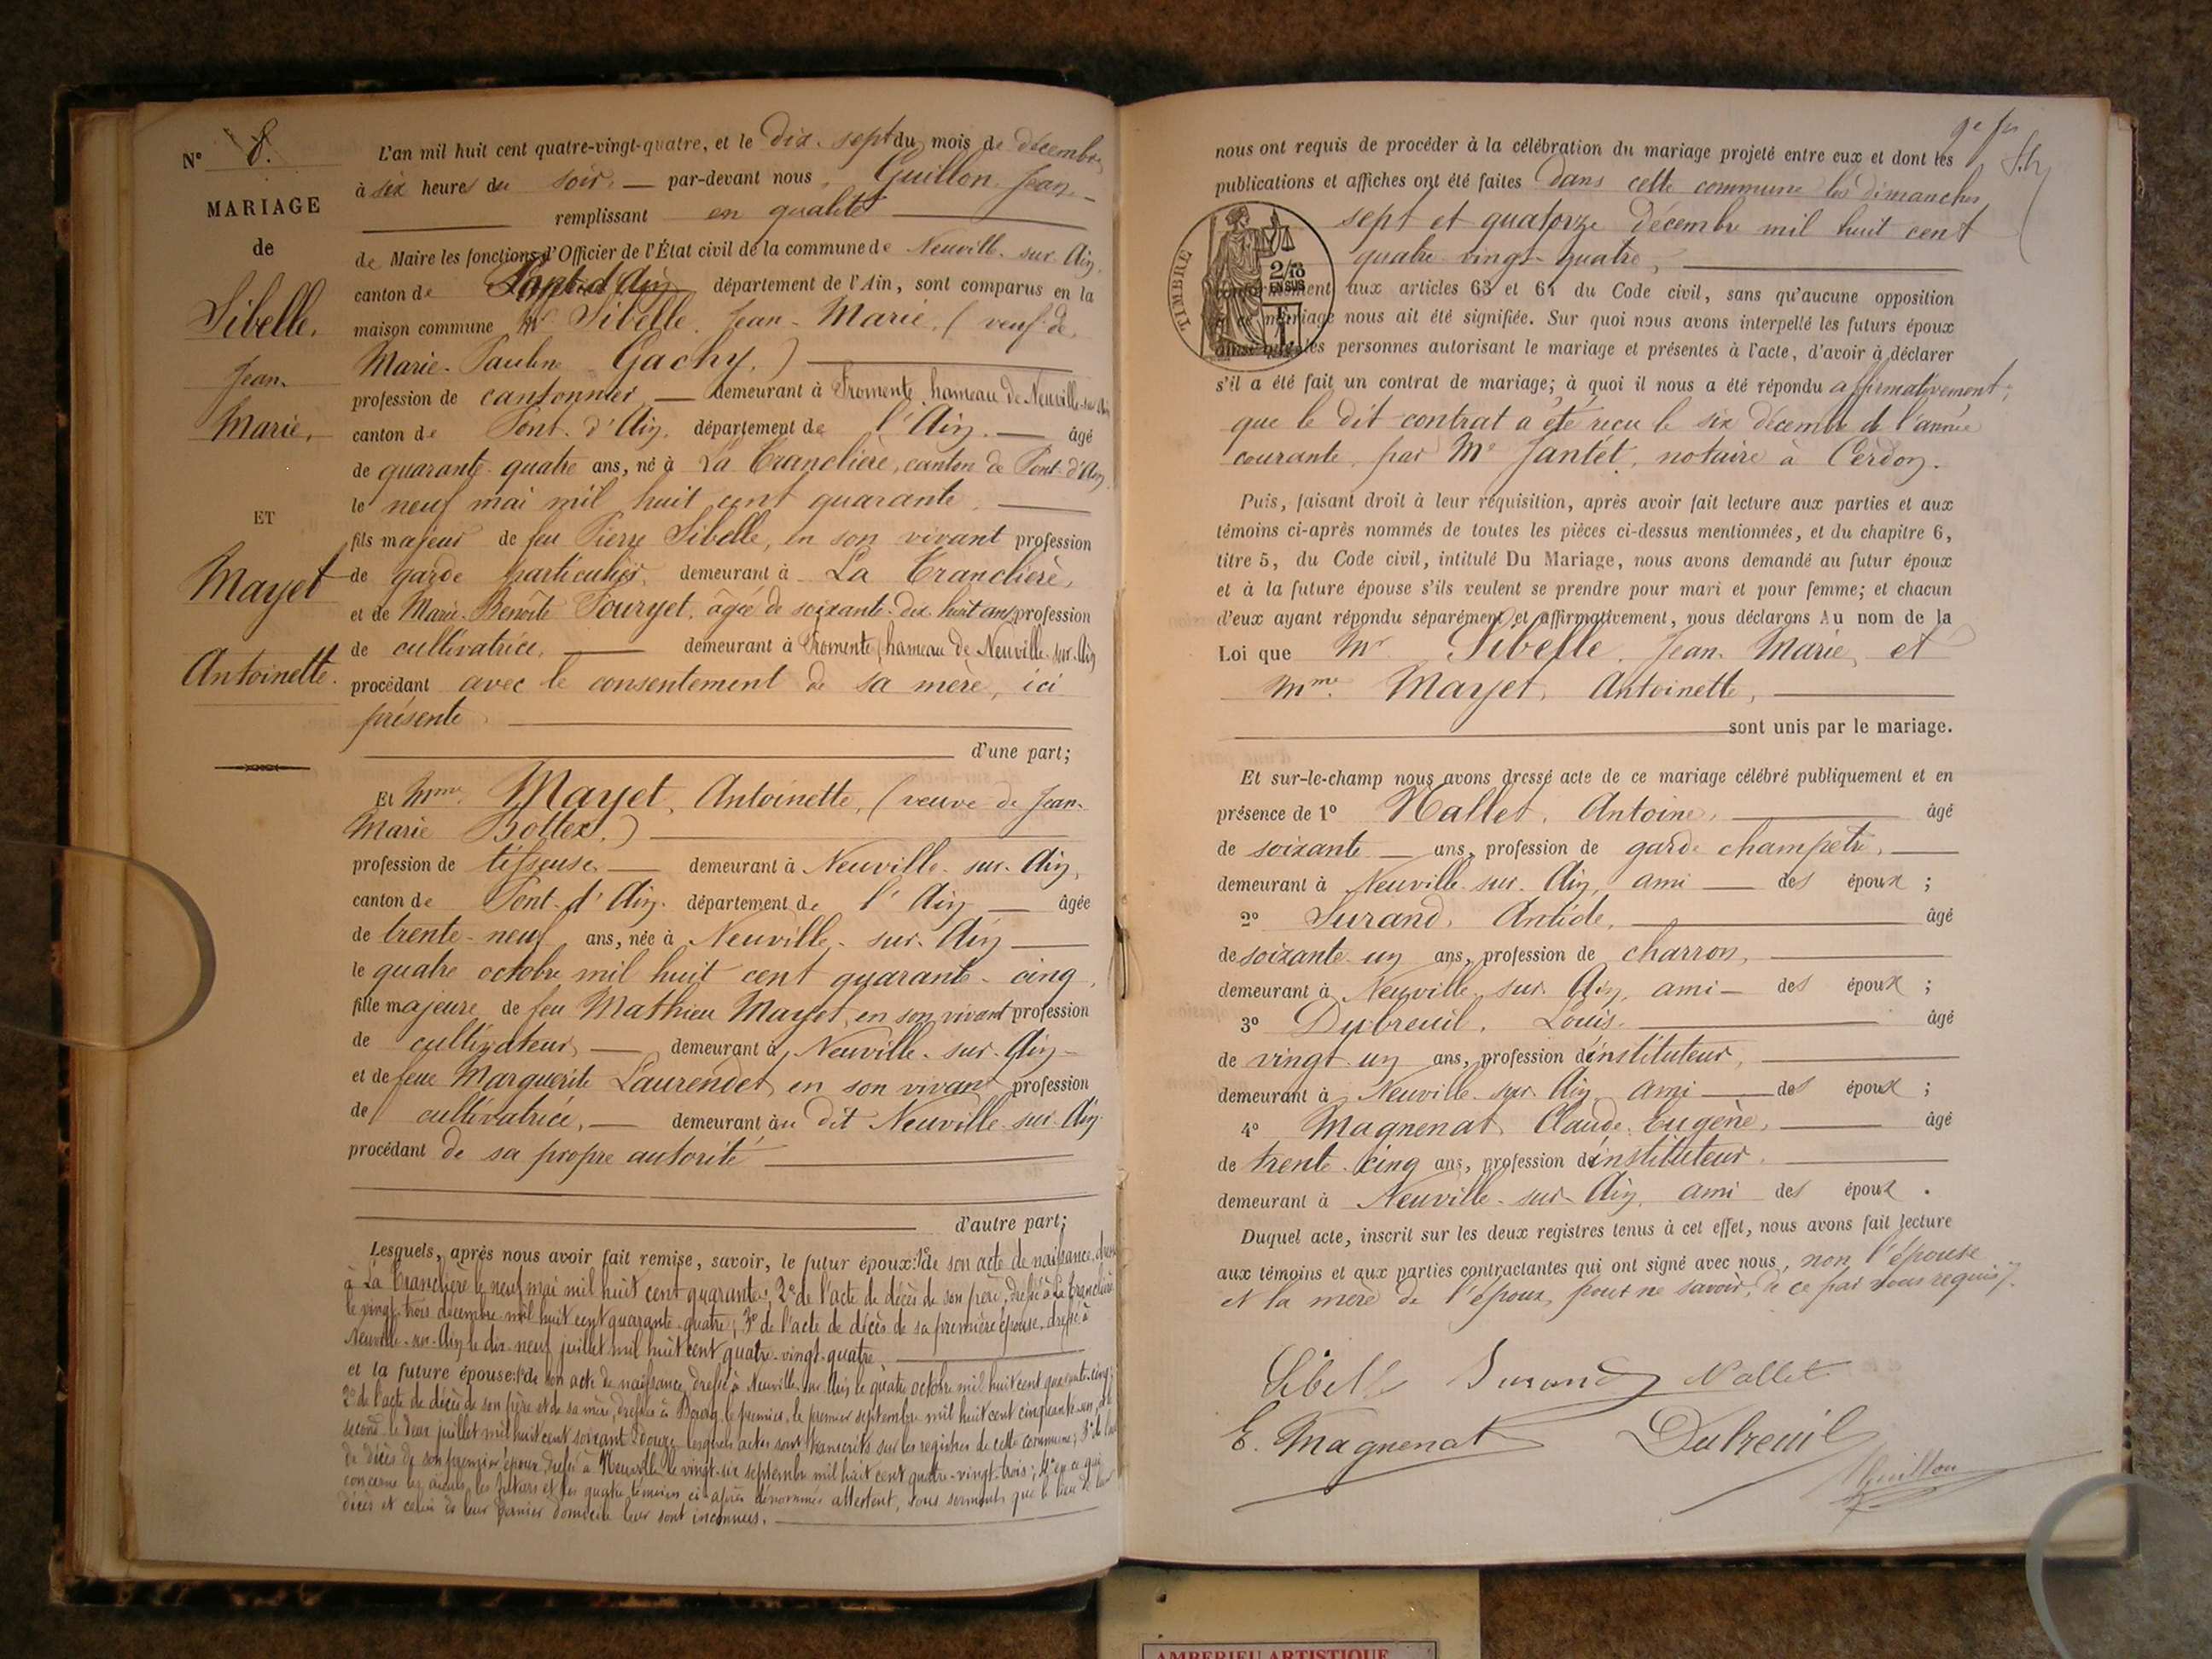 N° 8.
MARIAGE
de
Sibelle,
Jean-
Marie,
ET
Mayet
Antoinette.
L'an mil huit cent quatre-vingt-quatre, et le dix-sept du mois de décembre,
à six heures du soir, par-devant nous, Guillon, Jean,
remplissant en qualité
de Maire les fonctions d'Officier de l'État civil de la commune de Neuville-sur-Ain,
canton de Pont-d'Ain département de l'Ain, sont comparus en la
maison commune Mr Sibelle, Jean-Marie, (veuf de
Marie-Pauline Gachy,)
profession de cantonnier demeurant à Fromente, hameau de Neuville-sur-Ain
canton de Pont-d'Ain, département de l'Ain. âgé
de quarante-quatre ans, né à La Tranclière, canton de Pont-d'Ain,
le neuf mai mil huit cent quarante,
fils majeur de feu Pierre Sibelle, en son vivant profession
de garde particulier, demeurant à La Tranclière,
et de Marie-Benoîte Pouryet, âgée de soixante-dix-huit ans, profession
de cultivatrice, demeurant à Fromente, hameau de Neuville-sur-Ain
procédant avec le consentement de sa mère, ici
présente,
d'une part;
Et Mme Mayet, Antoinette, (veuve de Jean-
Marie Bollex,)
profession de tisseuse, demeurant à Neuville-sur-Ain,
canton de Pont-d'Ain, département de l'Ain âgée
de trente-neuf ans, née à Neuville-sur-Ain
le quatre octobre mil huit cent quarante-cinq,
fille majeure de feu Mathieu Mayet, en son vivant profession
de cultivateur, demeurant à Neuville-sur-Ain
et de feue Marguerite Laurendet, en son vivant profession
de cultivatrice, demeurant au dit Neuville-sur-Ain
procédant de sa propre autorité
d'autre part;
Lesquels, après nous avoir fait remise, savoir, le futur époux: 1° de son acte de naissance, dressé
à La Tranclière le neuf mai mil huit cent quarante; 2° de l'acte de décès de son père, dressé à La Tranclière
le vingt-trois décembre mil huit cent quarante-quatre; 3° de l'acte de décès de sa première épouse, dressé à
Neuville-sur-Ain le dix-neuf juillet mil huit cent quatre-vingt-quatre,
et la future épouse: 1° de son acte de naissance, dressé à Neuville-sur-Ain le quatre octobre mil huit cent quarante-cinq;
2° de l'acte de décès de son père et de sa mère, dressés à Bourg, le premier, le premier septembre mil huit cent cinquante-un, le
second, le deux juillet mil huit cent soixante-douze, lesquels actes sont transcrits sur les registres de cette commune; 3° de l'acte
de décès de son premier époux, dressé à Neuville le vingt-six septembre mil huit cent quatre-vingt-trois; 4° en ce qui
concerne les aïeuls, les futurs et les quatre témoins ci-après dénommés attestent, sous serment, que le lieu de leur
décès et celui de leur dernier domicile leur sont inconnus.
nous ont requis de procéder à la célébration du mariage projeté entre eux et dont les
publications et affiches ont été faites dans cette commune les dimanches
sept et quatorze décembre mil huit cent
quatre-vingt-quatre,
TIMBRE
2/10
EN SUS
conformément aux articles 63 et 64 du Code civil, sans qu'aucune opposition
à ce mariage nous ait été signifiée. Sur quoi nous avons interpellé les futurs époux
ainsi que les personnes autorisant le mariage et présentes à l'acte, d'avoir à déclarer
s'il a été fait un contrat de mariage; à quoi il nous a été répondu affirmativement;
que le dit contrat a été reçu le six décembre de l'année
courante, par Me Jantet, notaire à Cerdon.
Puis, faisant droit à leur réquisition, après avoir fait lecture aux parties et aux
témoins ci-après nommés de toutes les pièces ci-dessus mentionnées, et du chapitre 6,
titre 5, du Code civil, intitulé Du Mariage, nous avons demandé au futur époux
et à la future épouse s'ils veulent se prendre pour mari et pour femme; et chacun
d'eux ayant répondu séparément et affirmativement, nous déclarons Au nom de la
Loi que Mr Sibelle, Jean-Marie, et
Mme Mayet, Antoinette,
sont unis par le mariage.
Et sur-le-champ nous avons dressé acte de ce mariage célébré publiquement et en
présence de 1° Nallet, Antoine, âgé
de soixante ans, profession de garde champêtre,
demeurant à Neuville-sur-Ain, ami des époux;
2° Surand, Antide, âgé
de soixante-un ans, profession de charron,
demeurant à Neuville-sur-Ain, ami des époux;
3° Dubreuil, Louis, âgé
de vingt-un ans, profession d'instituteur,
demeurant à Neuville-sur-Ain, ami des époux;
4° Magnenat, Claude-Eugène, âgé
de trente-cinq ans, profession d'instituteur,
demeurant à Neuville-sur-Ain, ami des époux.
Duquel acte, inscrit sur les deux registres tenus à cet effet, nous avons fait lecture
aux témoins et aux parties contractantes qui ont signé avec nous, non l'épouse
et la mère de l'époux, pour ne savoir, de ce par nous requis.
Sibelle Surand Nallet
E. Magnenat Dubreuil
Guillon
AMBERIEU ARTISTIQUE